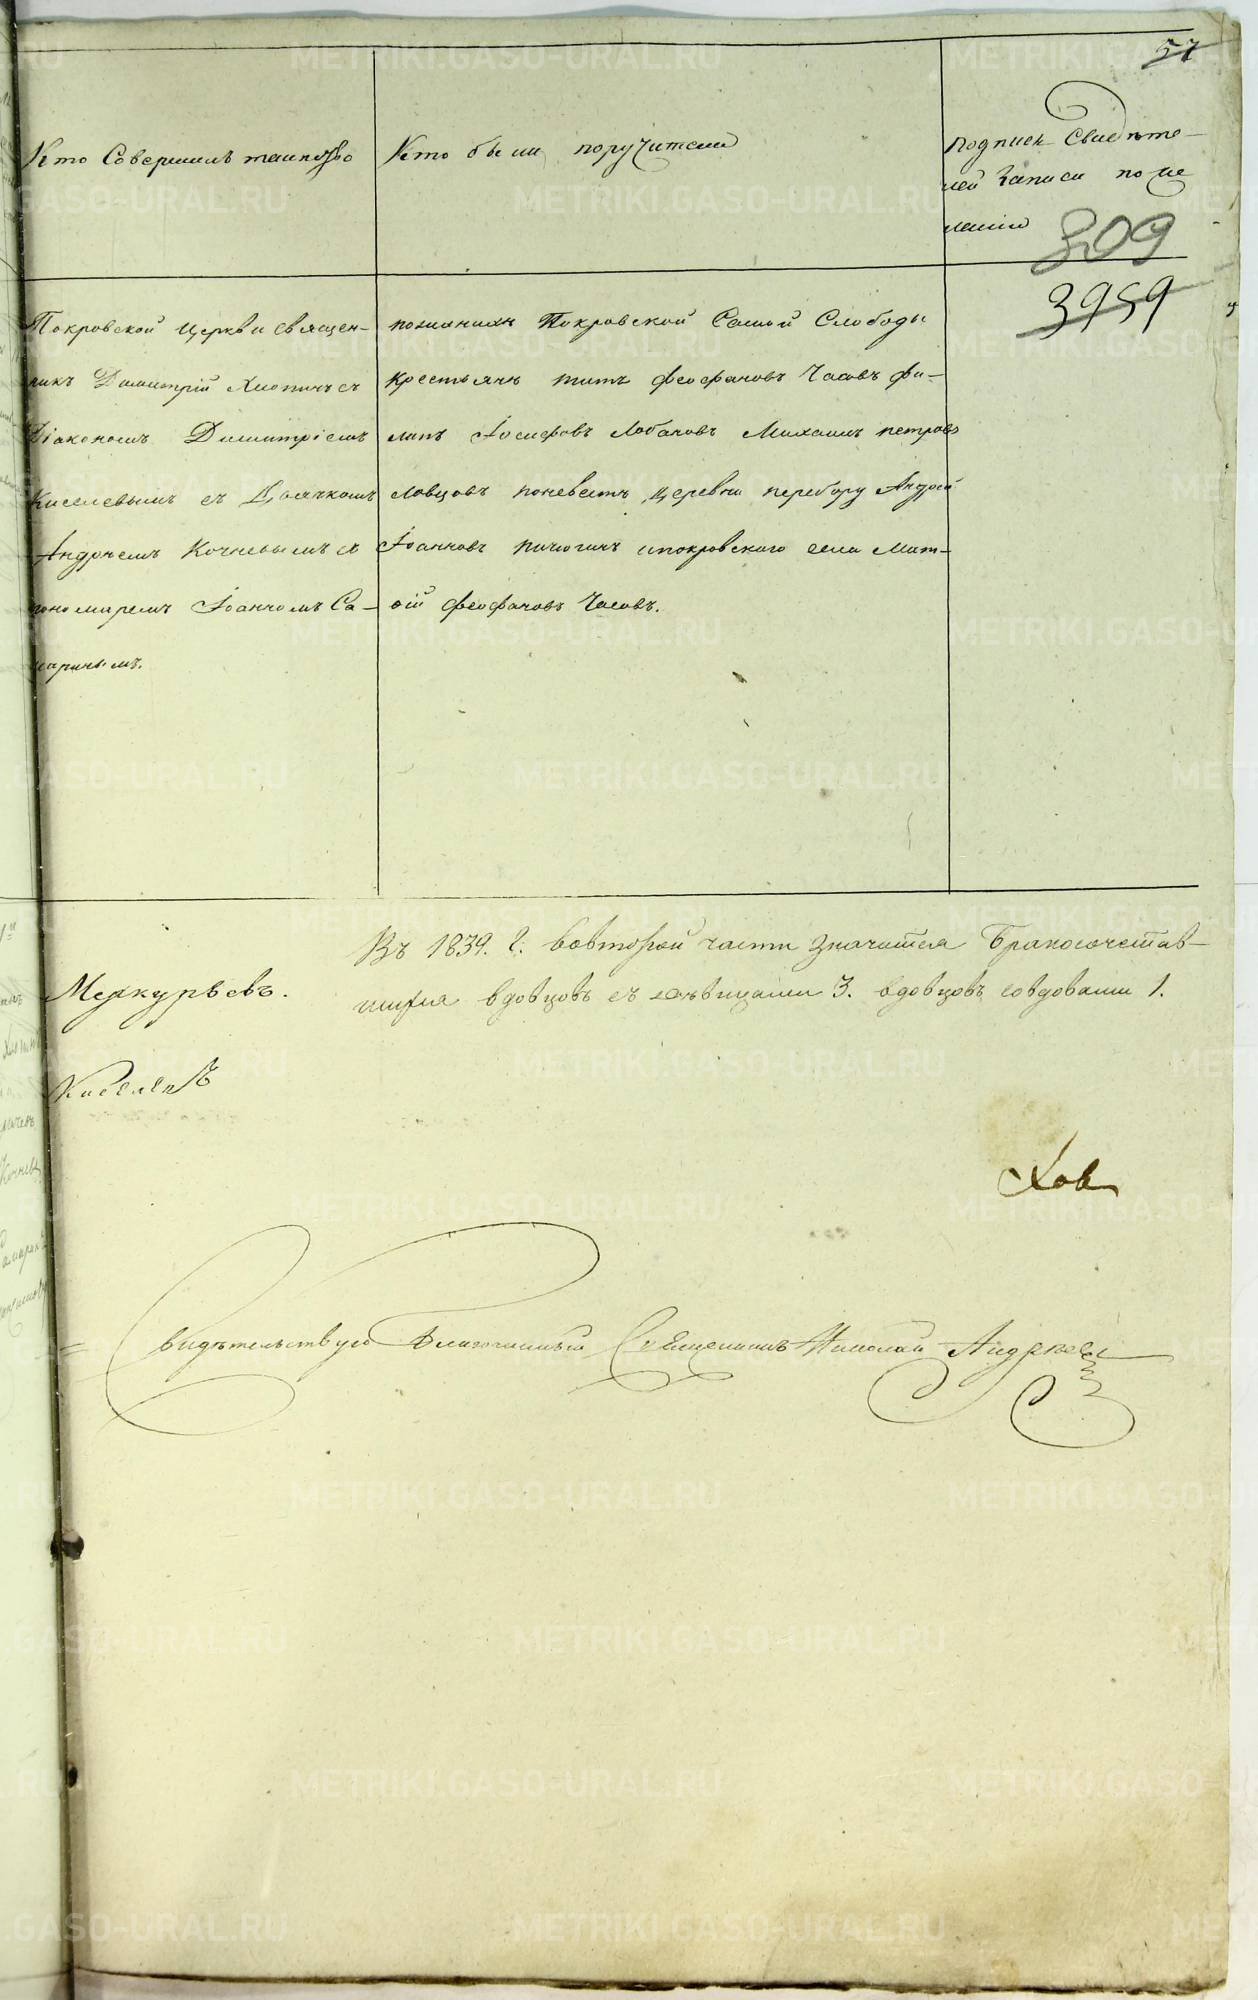 57
Кто Совершилъ таинство
Кто были поручители
подписи Свидѣте-
лей записи по же
ланію
309
3959
Покровской Церкви Священ-
никъ Димитрій съ
Діакономъ Димитріемъ
Киселевымъ съ Дьячкомъ
Андреемъ Кочневымъ съ
пономаремъ Іоанномъ Са-
маринымъ.
поженихѣ Покровской Самой Слободы
крестьяне титъ феофановъ Часовъ фи-
липъ Іосифовъ Лобановъ Михаилъ петровъ
Ловцовъ поневестѣ деревни перебору Андрей
Іоанновъ пичюгинъ ипокровскаго села Мат-
ѳій феофановъ Часовъ.
Меркурьевъ.
Киселевъ
Въ 1839. г. вовторой части значится Бракосочетав-
шихся вдовцовъ съ дѣвицами 3. вдовцовъ совдовами 1.
Хов
Свидѣтельствую Благочинный Священникъ Николай Андреев
METRIKI.GASO-URAL.RU